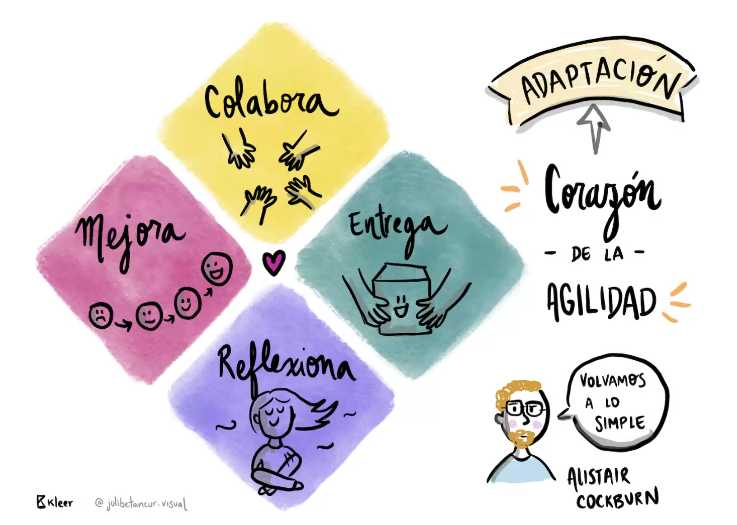 Colabora
Mejora
Entrega
Reflexiona
ADAPTACIÓN
Corazón
- DE LA -
AGILIDAD
VOLVAMOS
A LO
SIMPLE
ALISTAIR
COCKBURN
Kleer
@julibetancur.visual